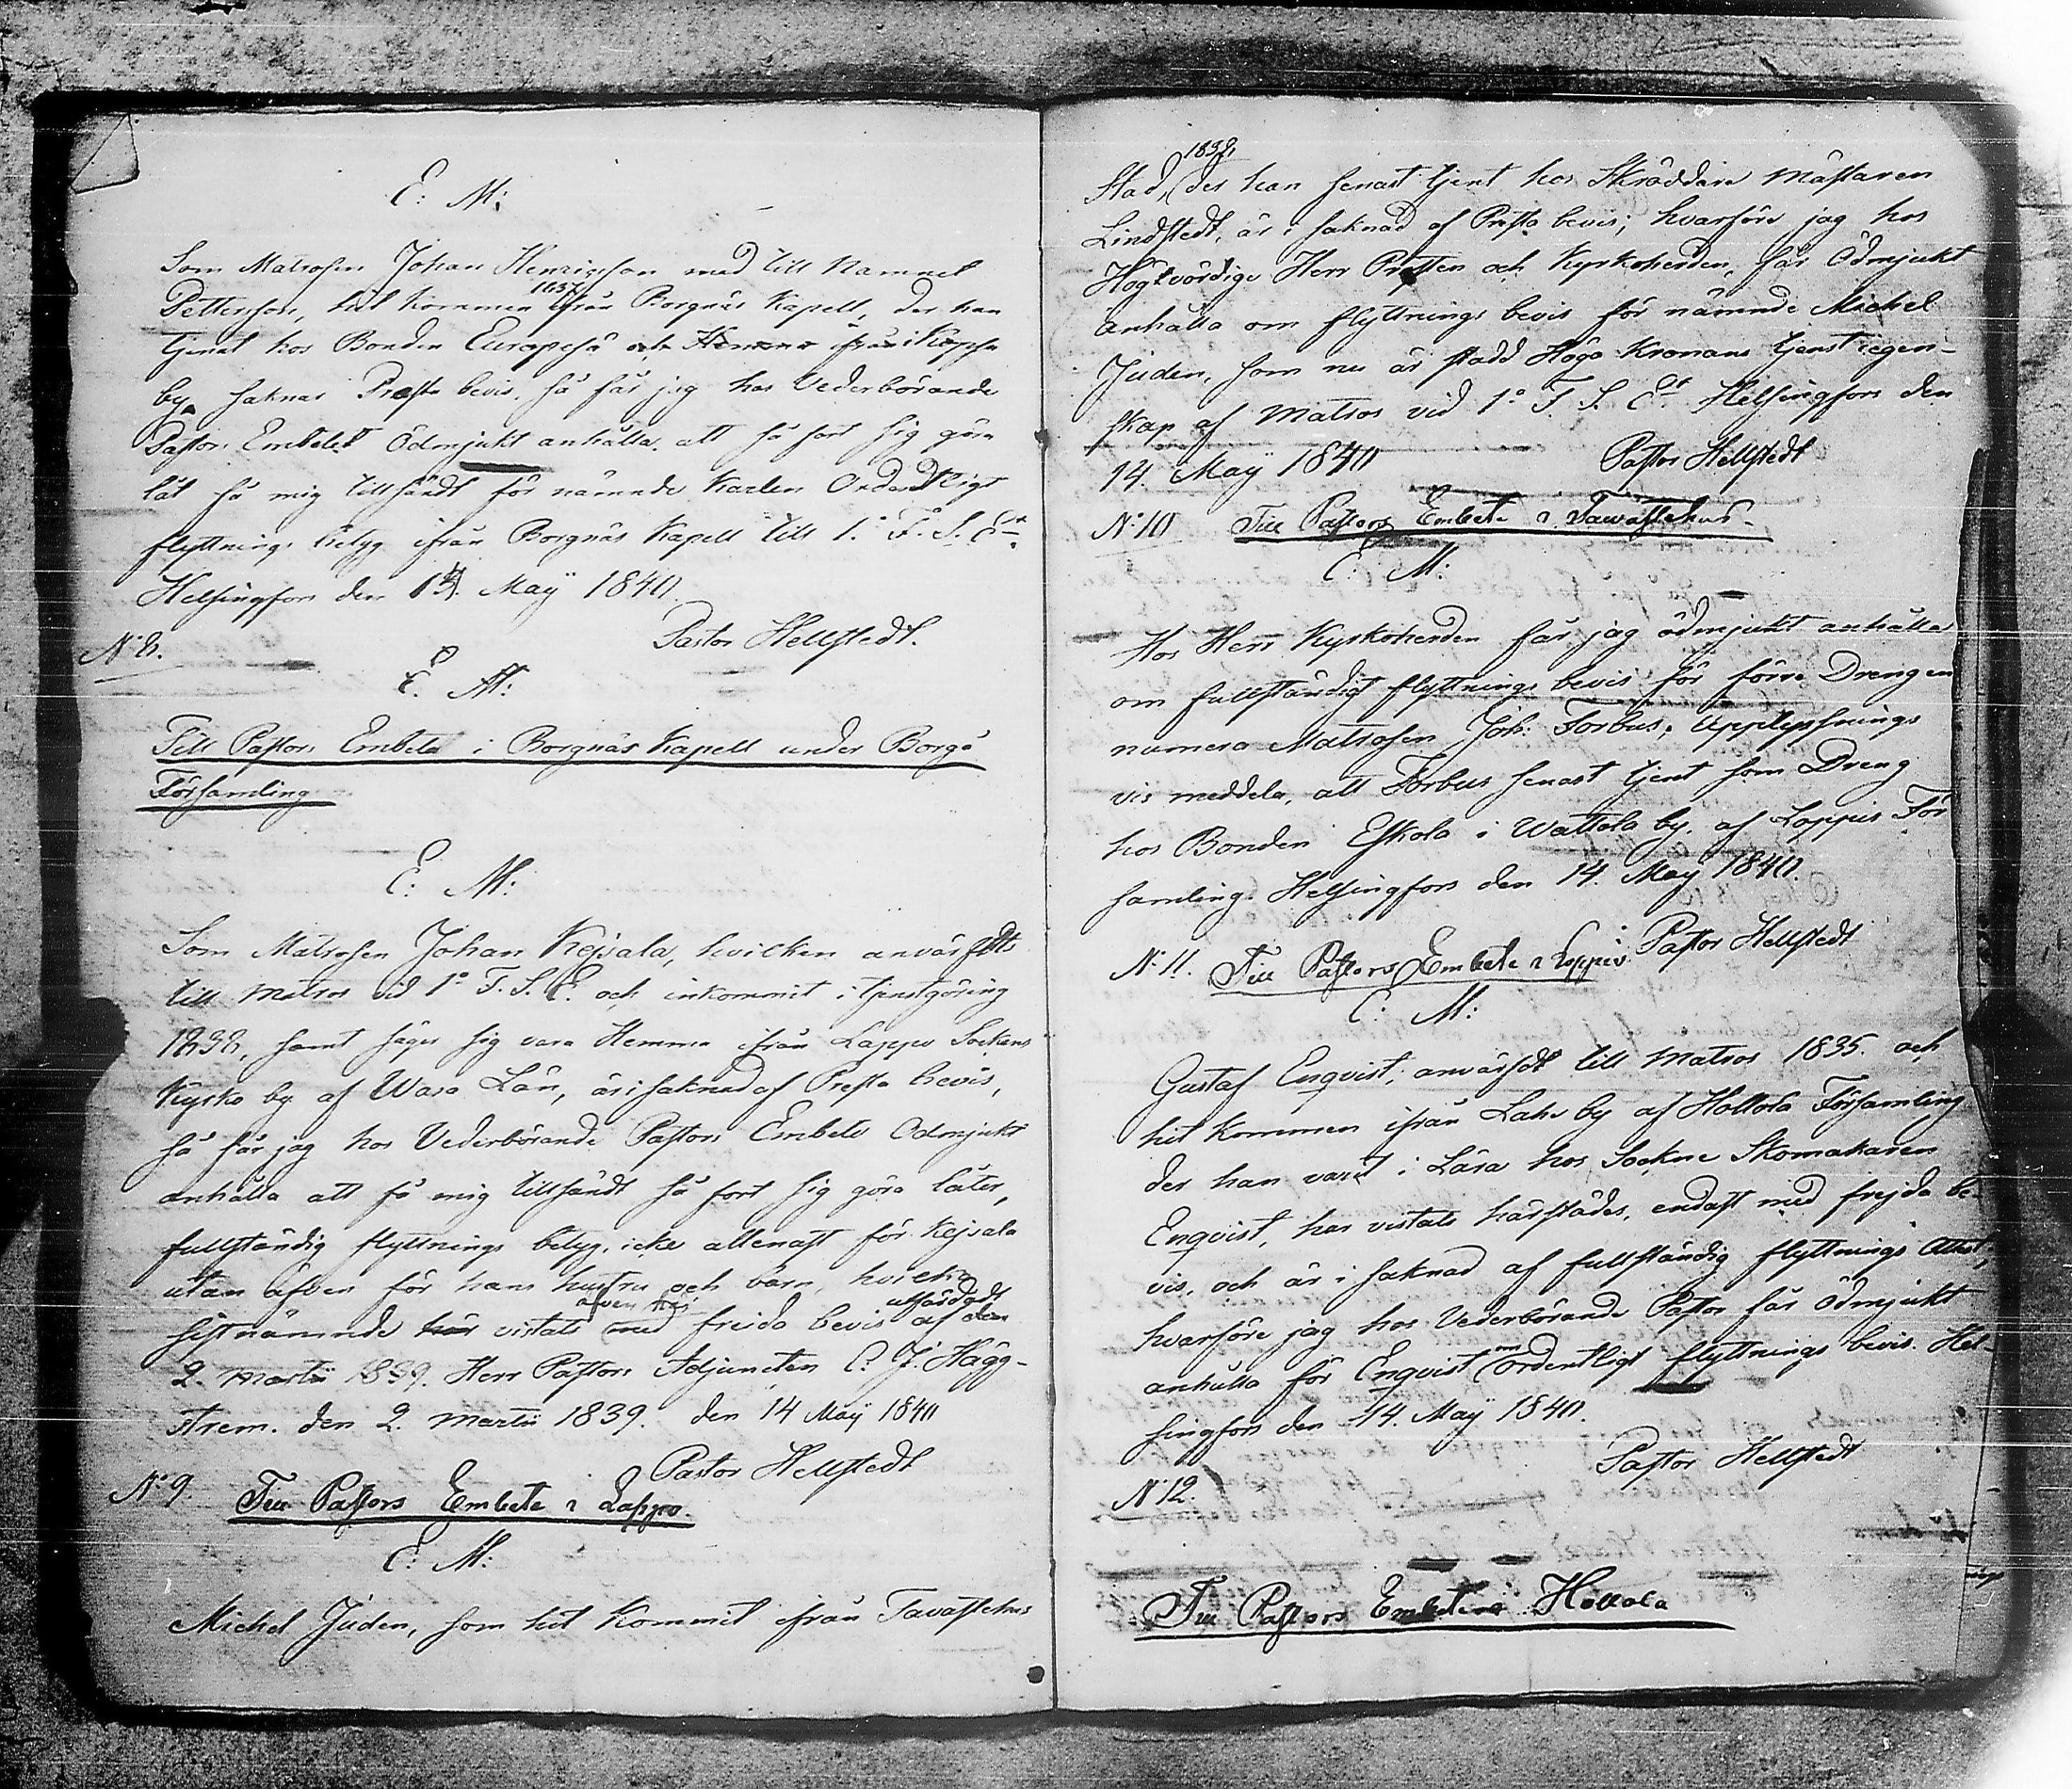 E: M:
Som Matrosen Johan Henricsson med till Namnet
1837
Pettersson, hit kommen ifrån Borgnäs Kapell, der han
tjenat hos Bonden Europesä och Hemma ifrån i
by, saknar Presta bevis, så får jag hos Vederbörande
Pastors Embetet Ödmjukt anhålla, att så fort sig göra
låt få mig tillsändt för nämnde Karlen Ordentligt
flyttnings betyg ifrån Borgnäs Kapell till 1:a F. S. E:
Helsingfors den 14. Maÿ 1840.
Pastor Hellstedt.
N:8.
E. M:
Till Pastors Embetet i Borgnäs Kapell under Borgå
Församling
E: M:
Som Matrosen Johan Kejsala, hvilken anvärfdt
till Matros vid 1:a F. S. E. och inkommit i tjenstgöring
1838, samt säger sig vara Hemma ifrån Lappo Sockens
Kyrko by af Wasa Län, är i saknad af Presta bevis,
så får jag hos Vederbörande Pastors Embete Ödmjukt
anhålla att få mig tillsändt så fort sig göra låter,
fullständig flyttnings betyg, icke allenast för Kejsala
utan äfven för hans hustru och barn, hvilka
även här utfärdadt
sistnämnde här vistats med frejda bevis af den
2. Martii 1839. Herr Pastors Adjuncten C. J. Hägg-
strem. den 2. Martii 1839. den 14 Maÿ 1840
Pastor Hellstedt
N:9. Till Pastors Embete i Lappo.
E: M:
Michel Juden, som hit kommit ifrån Tavastehus
1838,
Stad, der han senast tjent hos Skräddare Mästaren
Lindstedt, är i saknad af Presta bevis; hvarföre jag hos
Högtvördige Herr Prosten och Kyrkoherden, får Ödmjukt
anhålla om flyttnings bevis för nämnde Michel
Juden, som nu är stadd Höga Kronans tjenst i egen-
skap af Matros vid 1:a F. S. E: Helsingfors den
14. Maÿ 1840
Pastor Hellstedt
N:10 Till Pastors Embete i Tawastehus.
E: M:
Hos Herr Kyrkoherden får jag ödmjukt anhålla
om fullständigt flyttnings bevis för förre Drengen
numera Matrosen Joh: Forbus; Upplysnings
vis meddela, att Forbus senast tjent som Dreng
hos Bonden Eskola i Wattola by. af Loppis För
samling. Helsingfors den 14. Maÿ 1840.
Pastor Hellstedt
N:11. Till Pastors Embete i Loppis.
E: M:
Gustaf Enqvist; anvärfdt till Matros 1835. och
hit kommen ifrån Lahis by af Hollola Församling
der han varit i Lära hos Sockne Skomakaren
Enqvist, har vistats härstädes, endast med frejda be-
vis, och är i saknad af fullständig flyttnings Attest;
hvarföre jag hos Vederbörande Pastor får Ödmjukt
om
anhålla för Enqvist ordentligt flyttnings bevis. Hel-
singfors den 14. Maÿ 1840.
Pastor Hellstedt
N:12.
Till Pastors Embete i Hollola